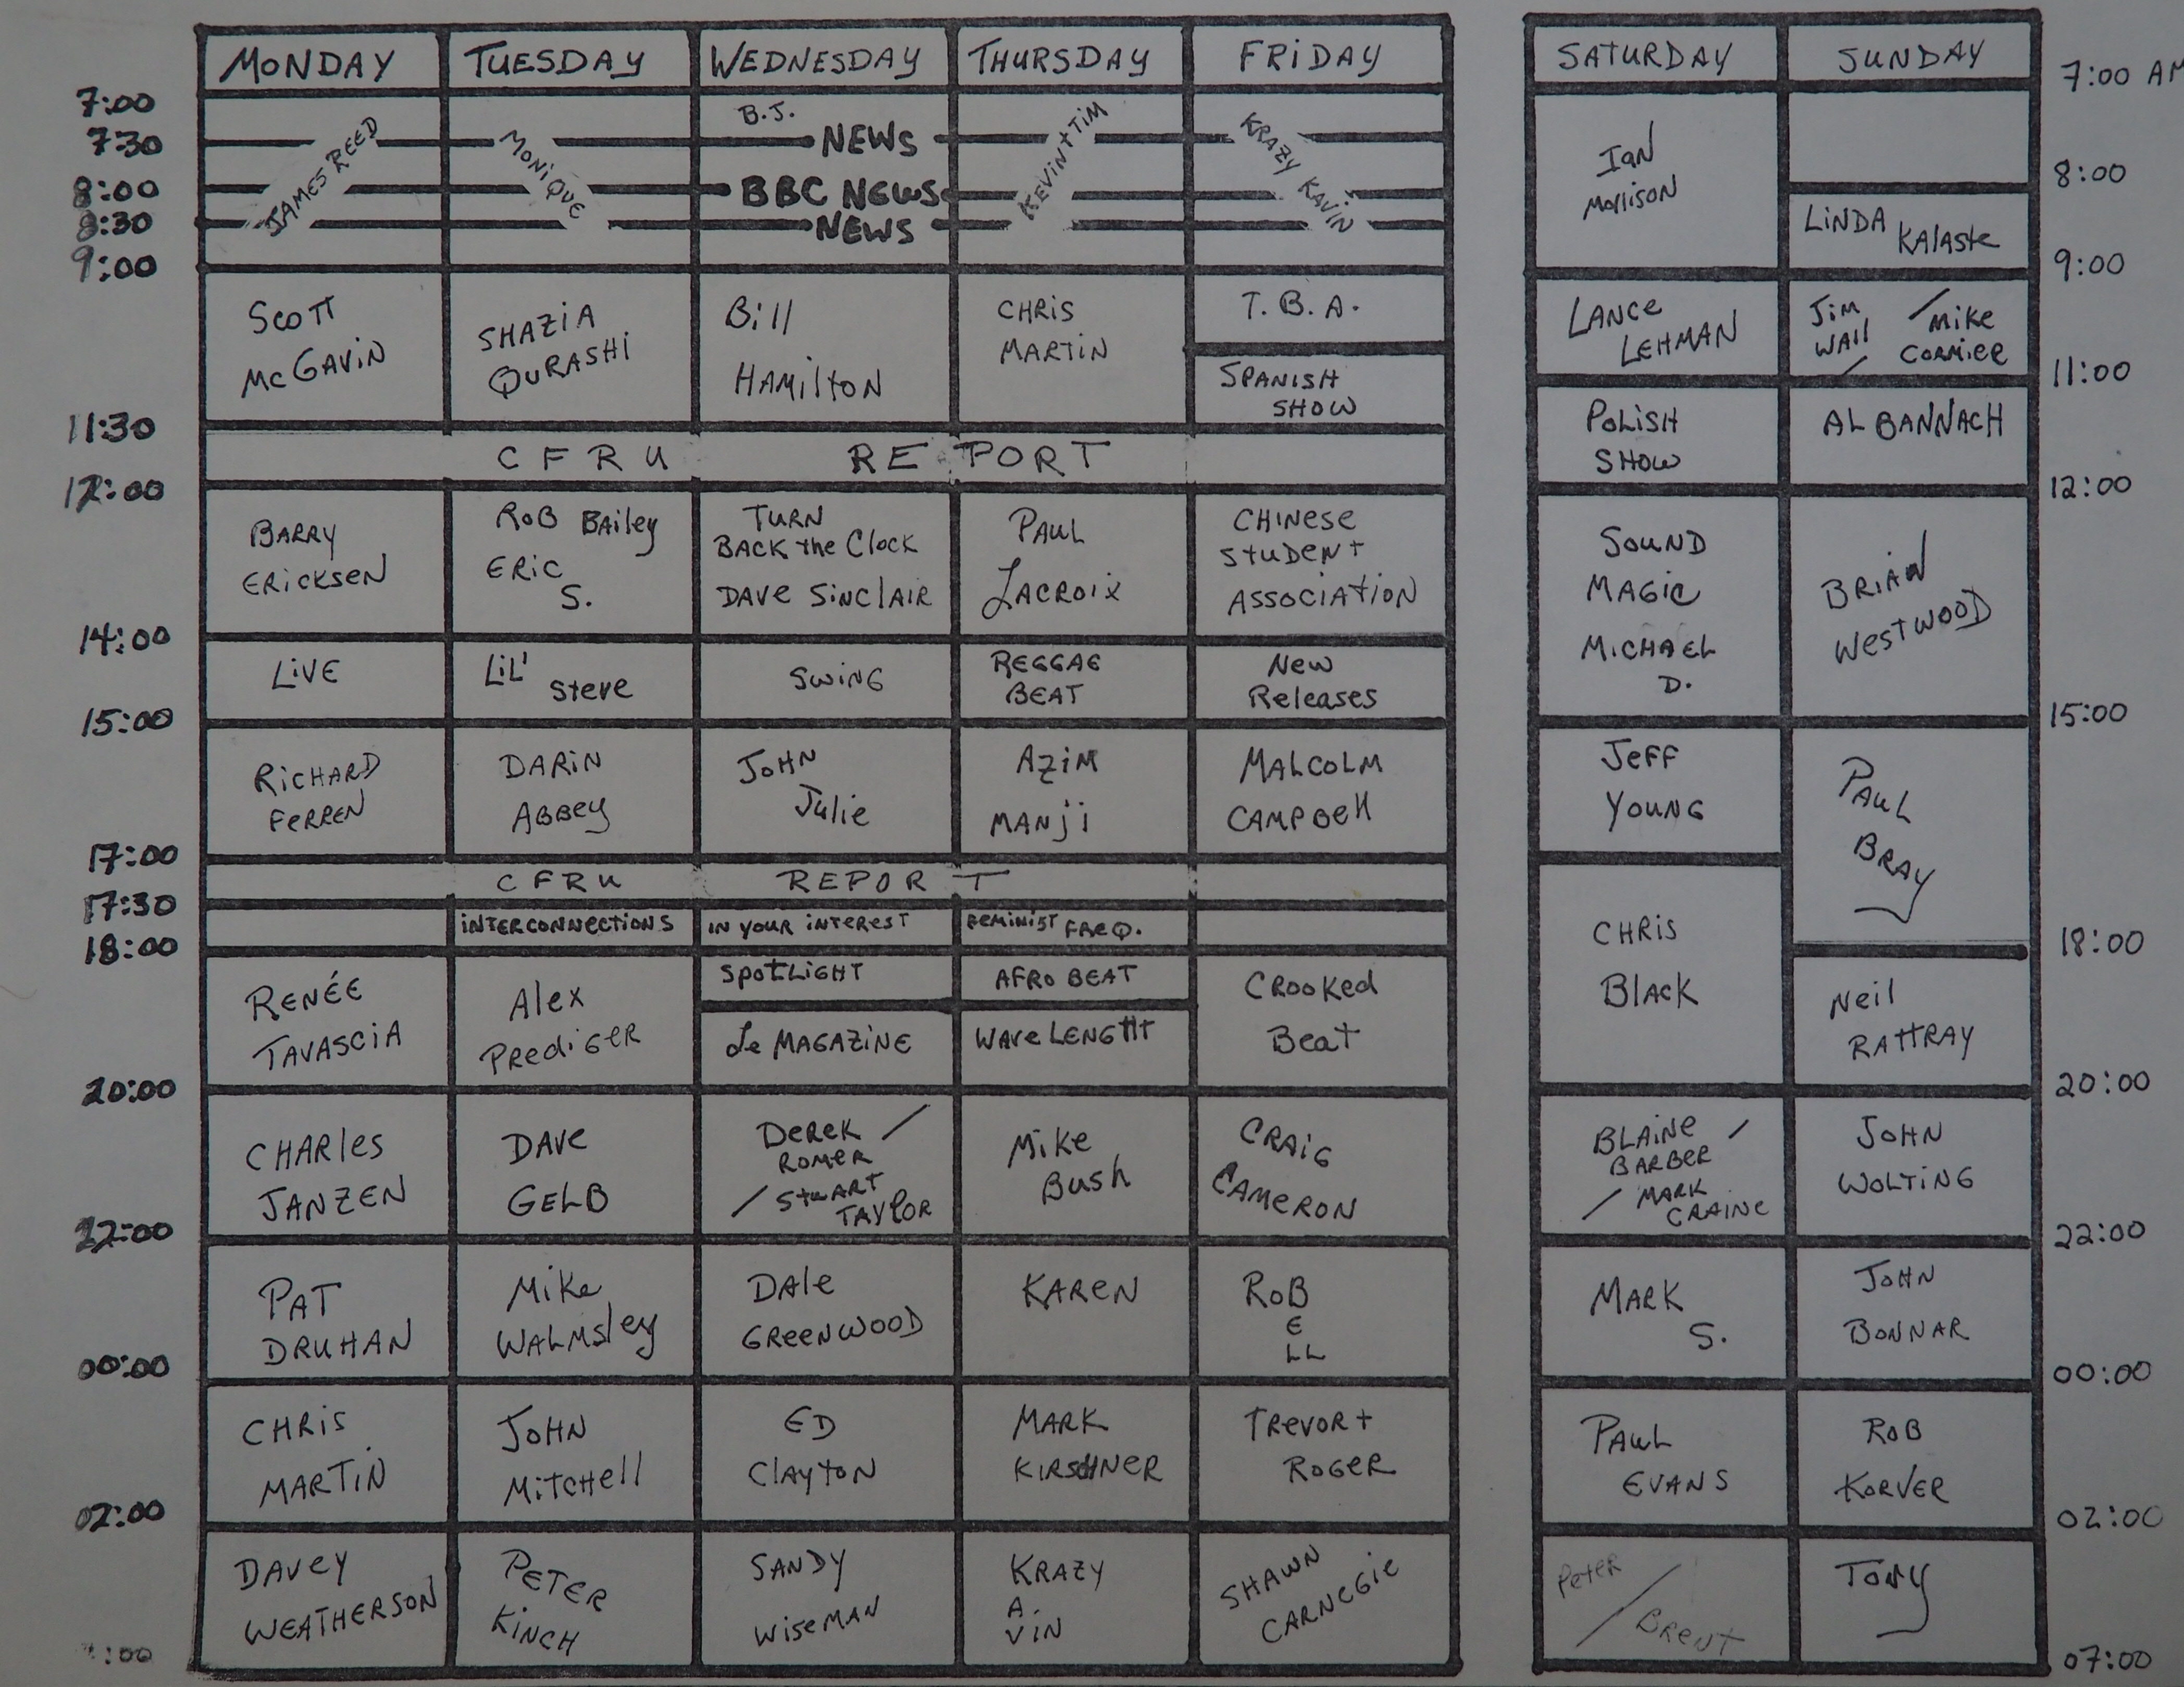 MONDAY TUESDAY WEDNESDAY THURSDAY FRIDAY SATURDAY SUNDAY
7:00 7:00 AM
7:30
8:00 8:00
8:30
9:00 9:00
JAMES REED
MONIQUE
B.J.
NEWS
BBC NEWS
NEWS
KEVIN + TIM
KRAZY KAVIN
Ian
Mollison
LINDA KALASTE
SCOTT
McGAVIN
SHAZIA
QURASHI
Bill
HAMILTON
CHRIS
MARTIN
T.B.A.
SPANISH
SHOW
LANCE
LEHMAN
JIM
WALL
/ MIKE
CORMIER
/
11:00
POLISH
SHOW
AL BANNACH
11:30
CFRU REPORT
12:00 12:00
BARRY
ERICKSEN
ROB BAILEY
ERIC
S.
TURN
BACK the CLOCK
DAVE SINCLAIR
PAUL
LACROIX
CHINESE
STUDENT
ASSOCIATION
SOUND
MAGIC
MICHAEL
D.
BRIAN
WESTWOOD
14:00
LIVE
LIL' Steve
SWING
REGGAE
BEAT
New
Releases
15:00 15:00
RICHARD
FERREN
DARIN
ABBEY
JOHN
Julie
AZIM
MANJI
MALCOLM
CAMPBELL
JEFF
YOUNG
PAUL
BRAY
17:00
CFRU REPORT
17:30
INTERCONNECTIONS
IN YOUR INTEREST
FEMINIST FREQ.
CHRIS
BLACK
18:00 18:00
RENÉE
TAVASCIA
Alex
PREDIGER
SPOTLIGHT
Le MAGAZINE
AFRO BEAT
WAVE LENGTH
CROOKED
Beat
Neil
RATTRAY
20:00 20:00
CHARLES
JANZEN
DAVE
GELB
DEREK /
ROMER
/ STUART
TAYLOR
MIKE
BUSH
CRAIG
CAMERON
BLAINE /
BARBER
/ MARK
CRAINE
JOHN
WOLTING
22:00 22:00
PAT
DRUHAN
MIKE
WALMSLEY
DALE
GREENWOOD
KAREN
ROB
E
LL
MARK
S.
JOHN
BONNAR
00:00 00:00
CHRIS
MARTIN
JOHN
MITCHELL
ED
CLAYTON
MARK
KIRSCHNER
TREVOR +
ROGER
PAUL
EVANS
ROB
KORVER
02:00 02:00
DAVEY
WEATHERSON
PETER
KINCH
SANDY
WISEMAN
KRAZY
A.
VIN
SHAWN
CARNEGIE
Peter
/ BRENT
TONY
:00 07:00